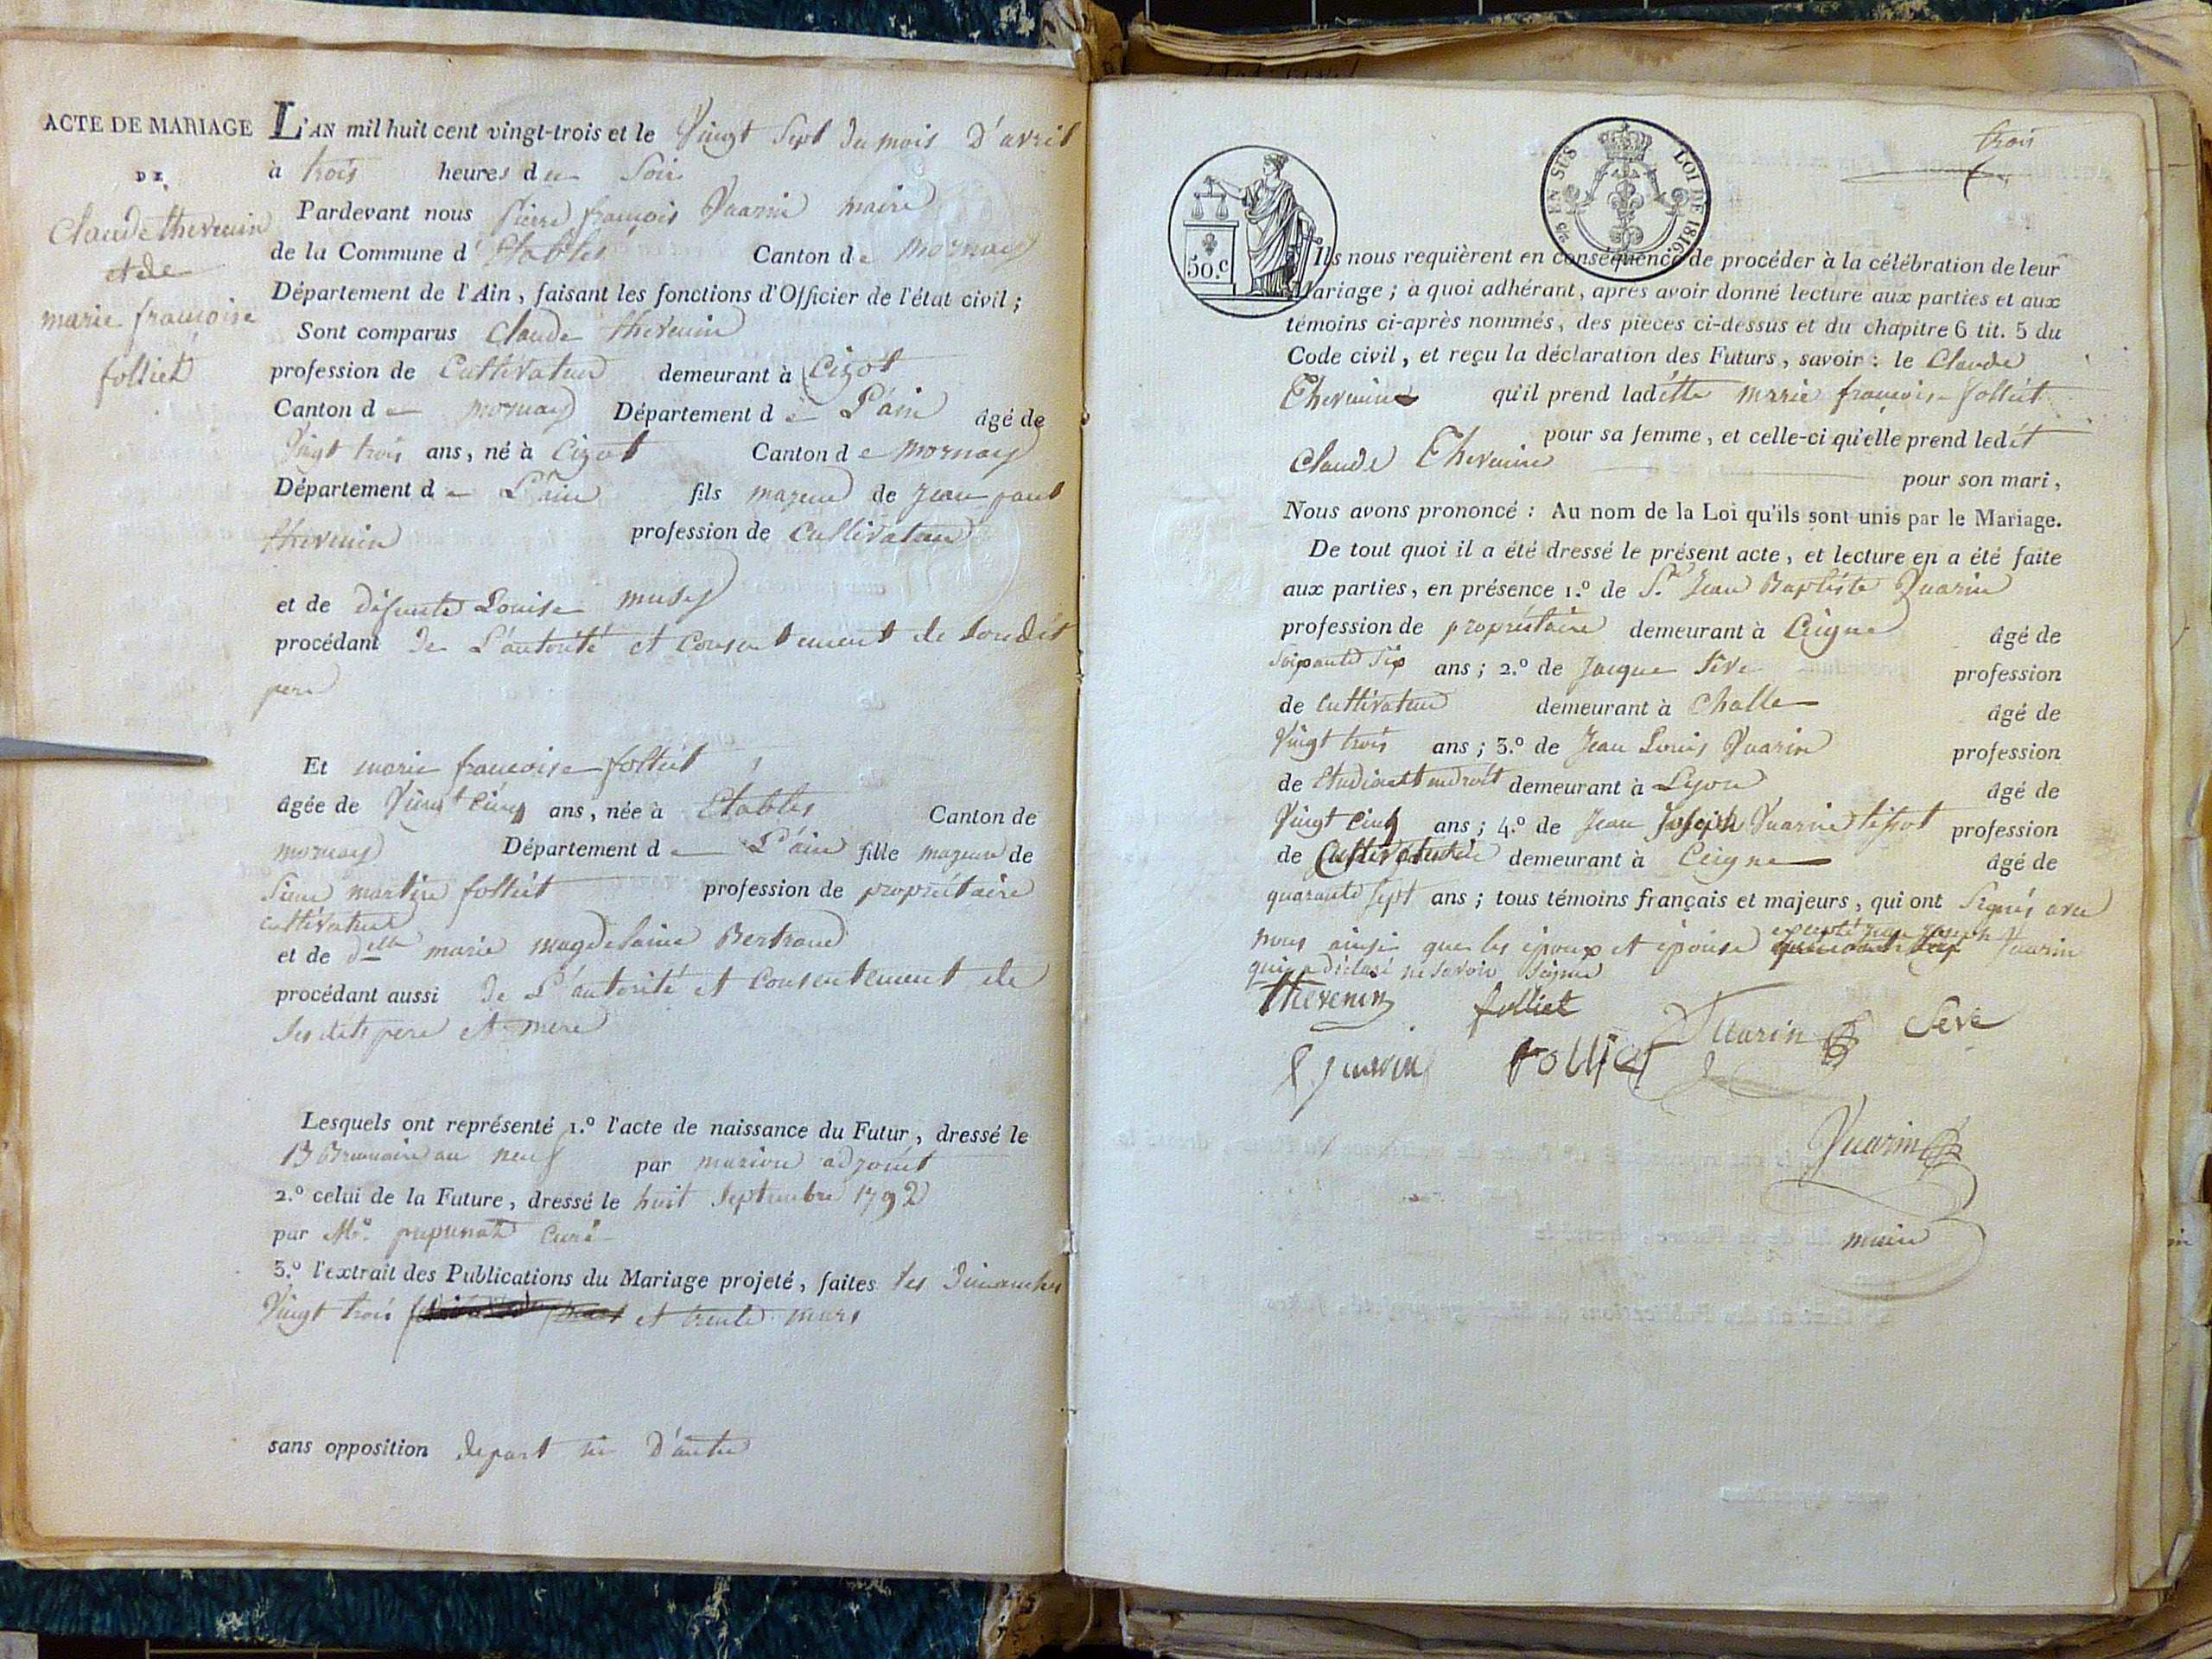 ACTE DE MARIAGE
DE
Claude thevenin
et de
marie françoise
folliet
L'AN mil huit cent vingt-trois et le Vingt Sept du mois D'avril
à trois heures du Soir
Pardevant nous pierre françois Vuarin maire
de la Commune d'Etables Canton de Mornay
Département de l'Ain, faisant les fonctions d'Officier de l'état civil ;
Sont comparus Claude thevenin
profession de Cultivateur demeurant à Cizot
Canton de mornay Département de L'ain âgé de
Vingt trois ans, né à Cizot Canton de Mornay
Département de L'ain fils majeur de jean paul
thevenin profession de Cultivateur
et de défunte Louise
procédant de L'autorité et Consentement de Sondit
pere
Et marie francoise folliet
âgée de Vingt Cinq ans, née à Etables Canton de
mornay Département de L'ain fille majeure de
Sieur martin folliet profession de propriétaire
cultivateur
et de delle marie magdelaine Bertrand
procédant aussi de L'autorité et Consentement de
Ses dits pere et mere
Lesquels ont représenté 1.º l'acte de naissance du Futur, dressé le
13 Brumaire an neuf par adjoint
2.º celui de la Future, dressé le huit Septembre 1792
par Mr. Curé
3.º l'extrait des Publications du Mariage projeté, faites les Dimanches
Vingt trois et trente mars
sans opposition depart ni D'autre
trois
50.c
2/9 EN SUS LOI DE 1816.
Ils nous requièrent en conséquence de procéder à la célébration de leur
Mariage ; à quoi adhérant, après avoir donné lecture aux parties et aux
témoins ci-après nommés, des pièces ci-dessus et du chapitre 6 tit. 5 du
Code civil, et reçu la déclaration des Futurs, savoir : le Claude
Thevenin qu'il prend ladette marie françoise folliet
pour sa femme, et celle-ci qu'elle prend ledit
Claude Thevenin
pour son mari,
Nous avons prononcé : Au nom de la Loi qu'ils sont unis par le Mariage.
De tout quoi il a été dressé le présent acte, et lecture en a été faite
aux parties, en présence 1.º de Sr. Jean Baptiste Vuarin
profession de propriétaire demeurant à Ceigne âgé de
Soixante Six ans ; 2.º de Jacque Sève profession
de Cultivateur demeurant à Challe âgé de
Vingt trois ans ; 3.º de Jean Louis Vuarin profession
de Etudiant en droit demeurant à Lyon âgé de
Vingt Cinq ans ; 4.º de Jean Joseph Vuarin tissot profession
de Cultivateur demeurant à Ceigne âgé de
quarante Sept ans ; tous témoins français et majeurs, qui ont Signés avec
nous ainsi que les époux et épouse excepté jean joseph Vuarin
qui a déclaré ne Savoir Signer
thevenin folliet Vuarin Seve
folliet
Vuarin
maire